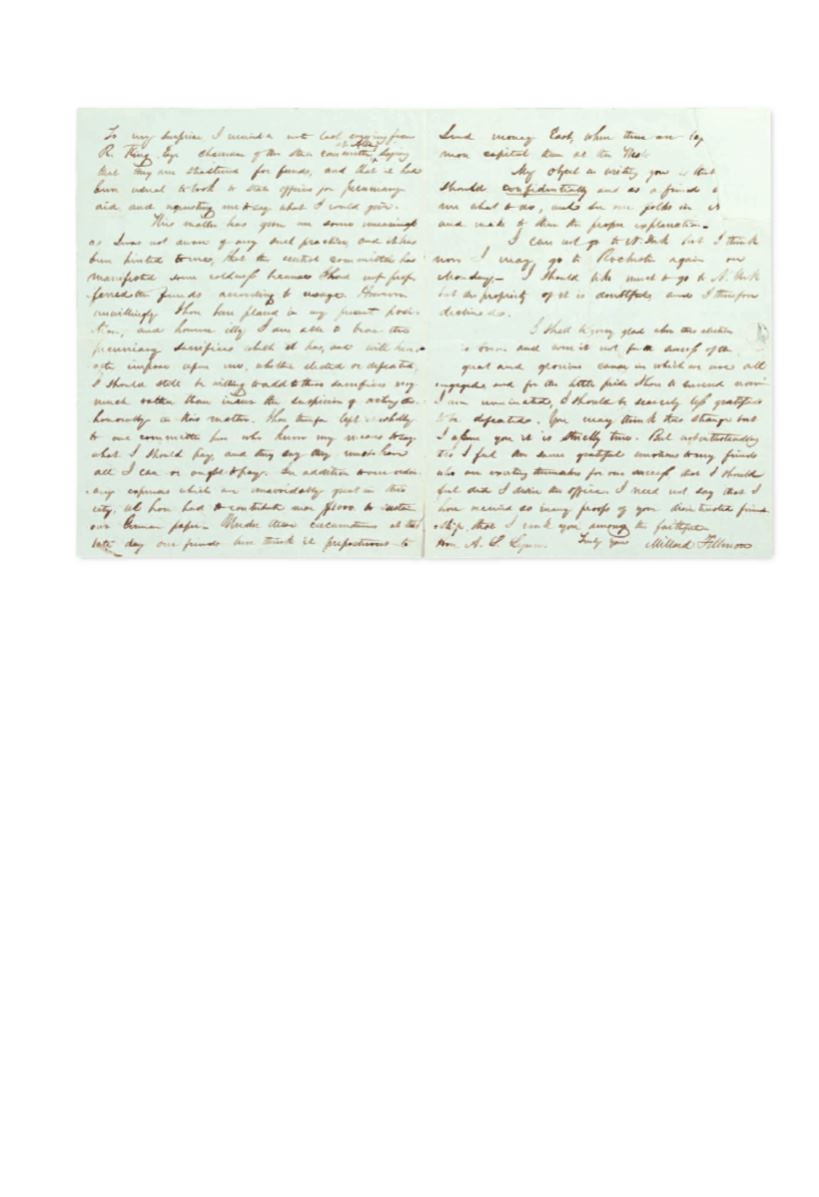 To my surprise, I received a note last evening from
R. King Esqr chairman of the state committee, at Albany, saying
that they are straitened for funds, and that it has
been usual to look to state officers for pecuniary
aid, and requesting me to say what I would give.
This matter has given me some uneasiness
as I was not aware of any such practice, and it has
been hinted to me, that the central committee has
manifested some coldness because I had not prof-
ferred the funds according to usage. However
unwillingly I have been placed in my present posi-
tion, and however illy I am able to bear the
pecuniary sacrifices which it has, and will here-
after impose upon me, whether elected or defeated,
I should still be willing to add to those sacrifices very
much rather than incur the suspicion of acting dis-
honorably in this matter. I have therefore left it wholly
to our committee here who know my means to say
what I should pay, and they say they must have
all I can or ought to pay. In addition to our ordin-
ary expenses which are unavoidably great in this
city, we have had to contribute near $1000 to sustain
our German paper. Under these circumstances at this
late day our friends here think it preposterous to
Send money East, when there are
more capital than at the West.
My object in writing you is that
should confidentially and as a friend
me what to do, and see our folks in
and make to them the proper explanation.
I can not go to N. York but I think
now I may go to Rochester again on
Monday. I should like much to go to N. York
but the propriety of it is doubtful, and I therefore
decline do.
I shall be very glad when this election
is over and were it not for the success of the
great and glorious cause in which we are all
engaged and for the little pride I have to succeed now
I am nominated, I should be scarcely less gratified
to be defeated. You may think this strange but
I assure you it is strictly true. But notwithstanding
this I feel the same grateful emotions to my friends
who are exerting themselves for our success that I should
feel did I desire the office. I need not say that I
have received so many proofs of your disinterested friend-
ship, that I rank you among the faithful.
Hon. A. S. Truly yours Millard Fillmore